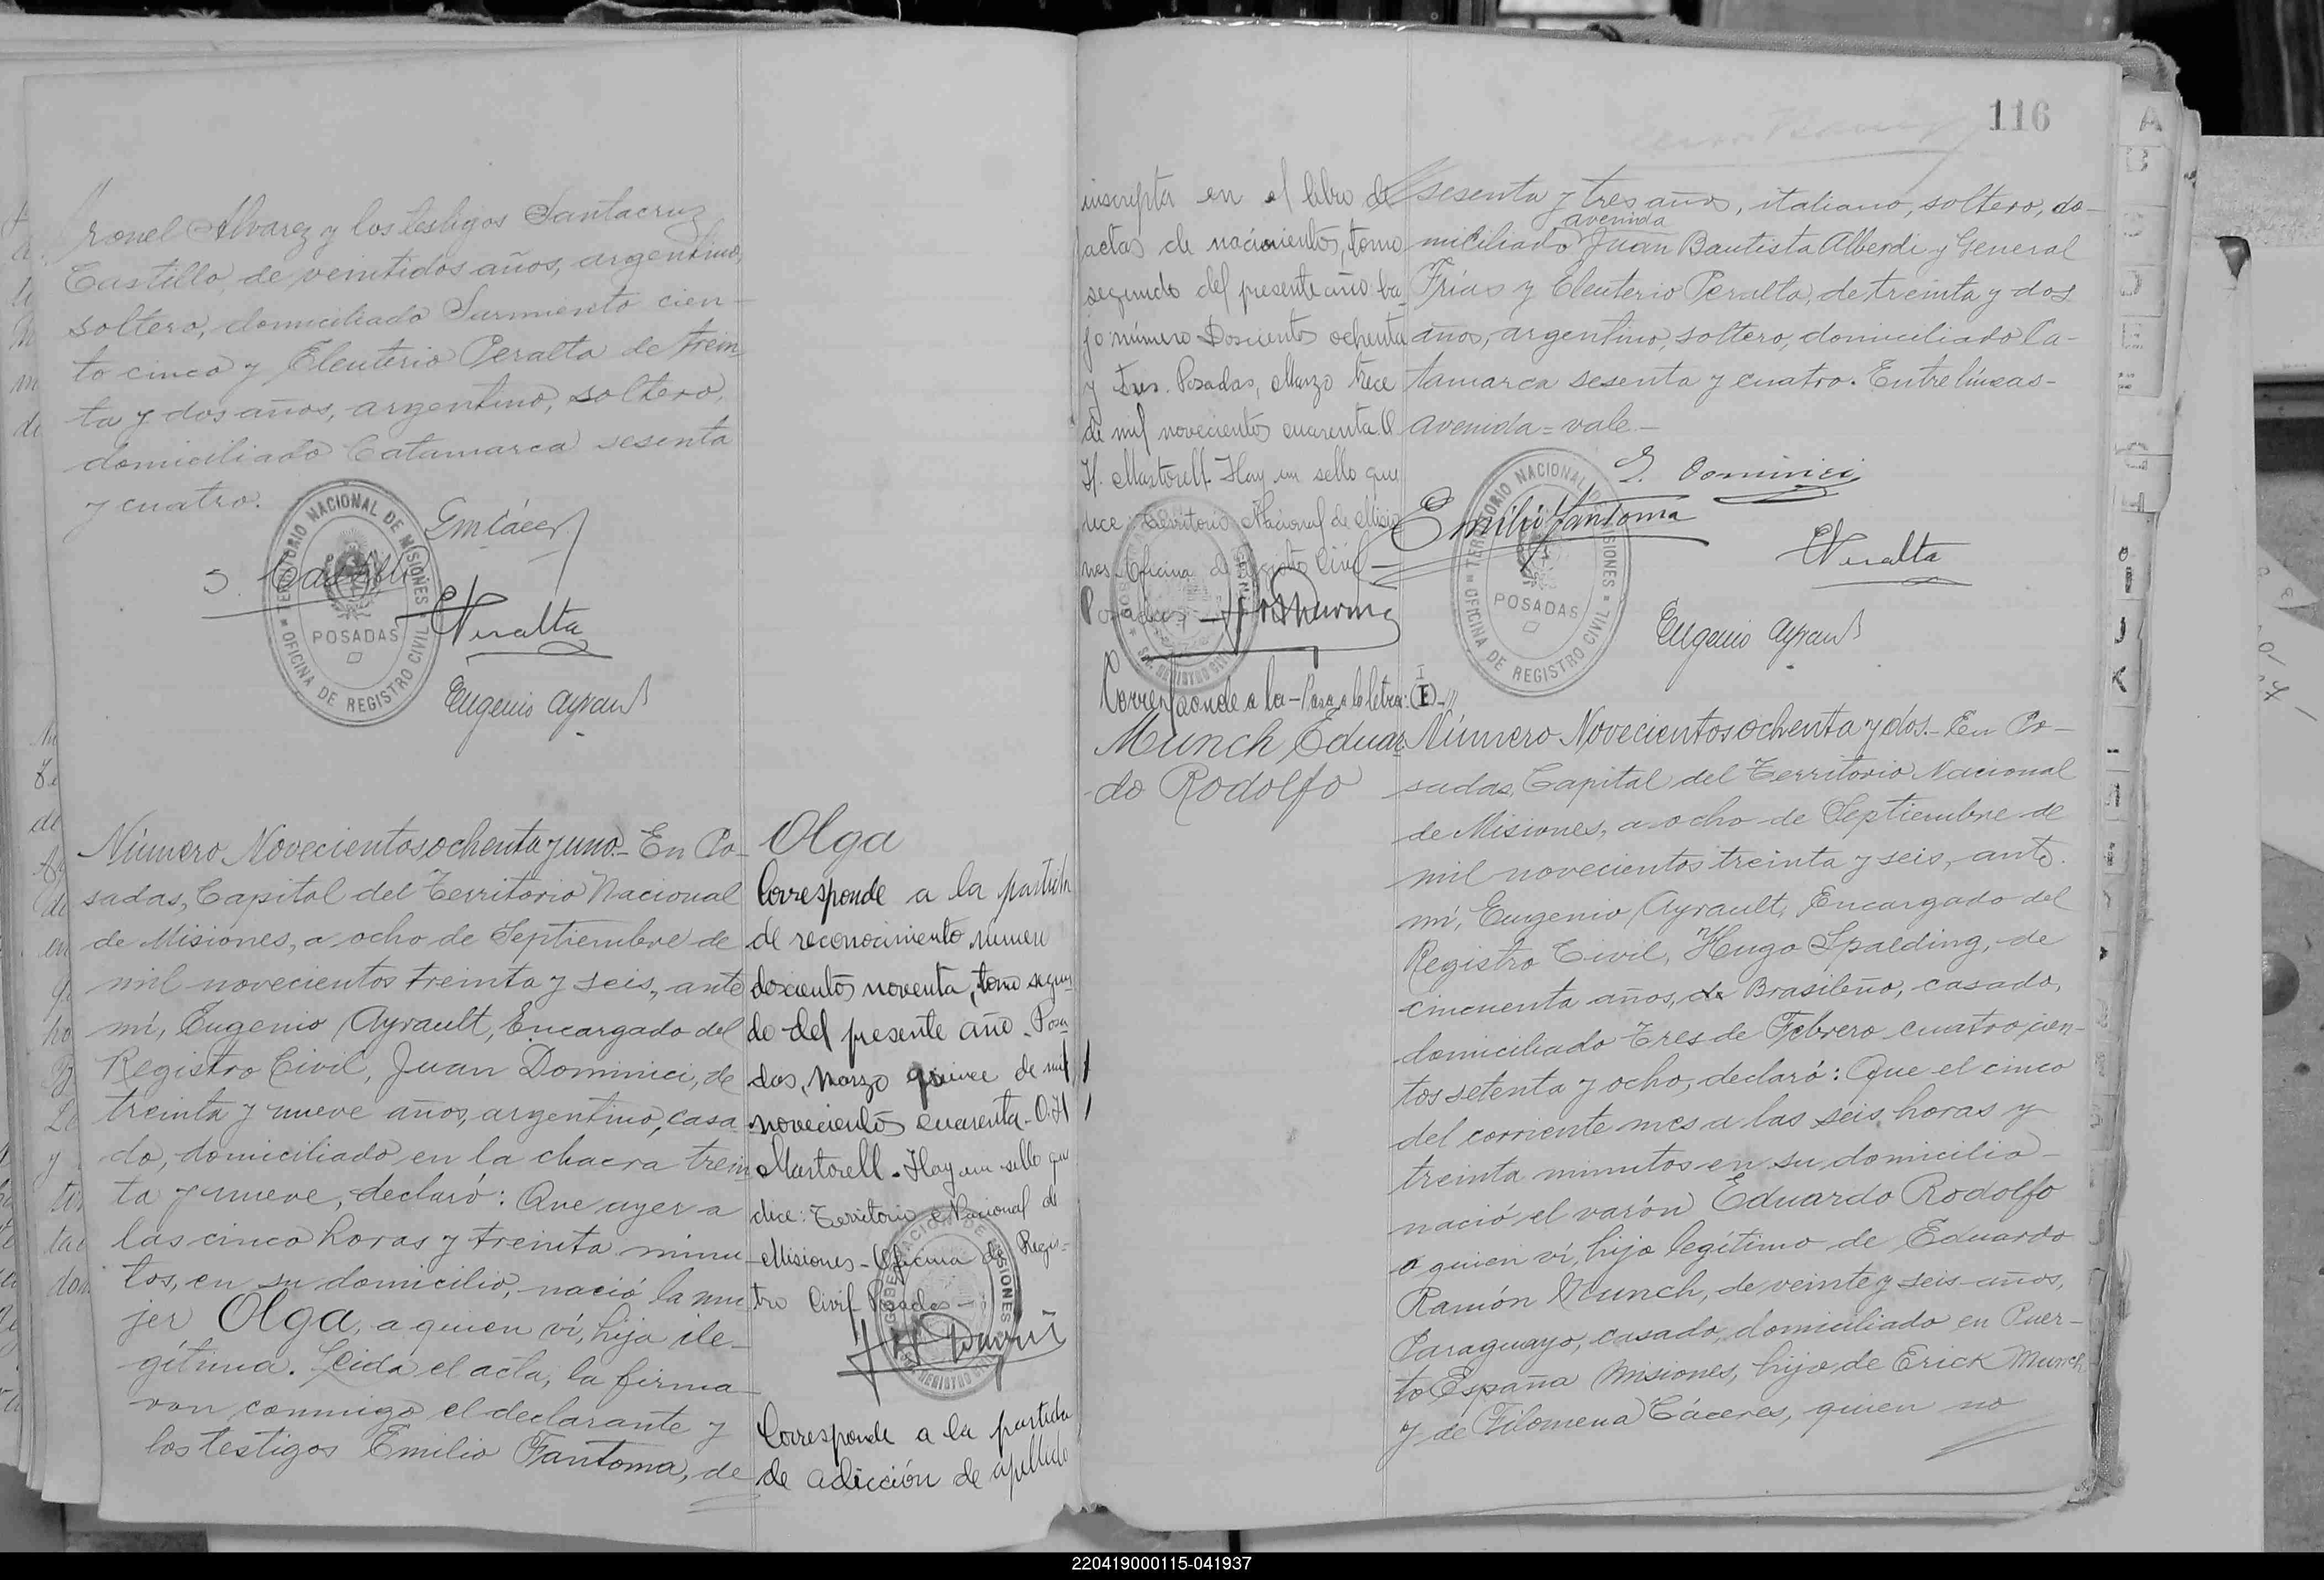 ronel Alvarez y los testigos Santacruz
Castillo, de veintidos años, argentino,
soltero, domiciliado Sarmiento cien-
to cinco y Eleuterio Peralta de trein
ta y dos años, argentino, soltero,
domiciliado Catamarca sesenta
y cuatro.
TERRITORIO NACIONAL DE MISIONES
POSADAS
OFICINA DE REGISTRO CIVIL
S. Castillo
EPeralta
Eugenio Ayrault
Número Novecientos ochenta y uno.- En Po-
sadas, Capital del Territorio Nacional
de Misiones, a ocho de Septiembre de
mil novecientos treinta y seis, ante
mí, Eugenio Ayrault, Encargado del
Registro Civil, Juan Dominici, de
treinta y nueve años, argentino, casa
do, domiciliado en la chacra trein
ta y nueve, declaró: Que ayer a
las cinco horas y treinta minu
tos, en su domicilio, nació la mu
jer Olga, a quien ví, hija ile-
gítima. Leida el acta, la firma-
ron conmigo el declarante y
los testigos Emilio Fantoma, de
Olga
Corresponde a la partida
de reconocimiento número
doscientos noventa, tomo segun
do del presente año. Posa
das, Marzo quince de mil
novecientos cuarenta. O. H
Martorell. Hay un sello que
dice: Territorio Nacional de
Misiones - Oficina de Regis-
tro Civil Posadas -
Corresponde a la partida
de adicción de apellido
116
inscripta en el libro de
actas de nacimientos, tomo
segundo del presente año ba
jo número Doscientos ochenta
y tres. Posadas, Marzo trece
de mil novecientos cuarenta. O
H. Martorell. Hay un sello que
dice: Territorio Nacional de Misio
nes Oficina de Registro Civil -
Posadas
Corresponde a la - Pasa a la letra: I
Munch Eduar
do Rodolfo
sesenta y tres años, italiano, soltero, do-
avenida
miciliado Juan Bautista Alberdi y General
Frías y Eleuterio Peralta, de treinta y dos
años, argentino, soltero, domiciliado Ca-
tamarca sesenta y cuatro. Entre líneas-
avenida = vale.-
J. Dominici
Emilio Fantoma
EPeralta
TERRITORIO NACIONAL DE MISIONES
POSADAS
OFICINA DE REGISTRO CIVIL
Eugenio Ayrault
Número Novecientos ochenta y dos.- En Po-
sadas, Capital del Territorio Nacional
de Misiones, a ocho de Septiembre de
mil novecientos treinta y seis, ante
mí, Eugenio Ayrault, Encargado del
Registro Civil, Hugo Spalding, de
cincuenta años, de Brasileño, casado,
domiciliado Tres de Febrero cuatrocien-
tos setenta y ocho, declaró: Que el cinco
del corriente mes a las seis horas y
treinta minutos en su domicilio-
nació el varón Eduardo Rodolfo
a quien ví, hijo legítimo de Eduardo
Ramón Munch, de veinte y seis años,
Paraguayo, casado, domiciliado en Puer-
to España Misiones, hijo de Erick Munch
y de Filomena Cáceres, quien no
220419000115-041937